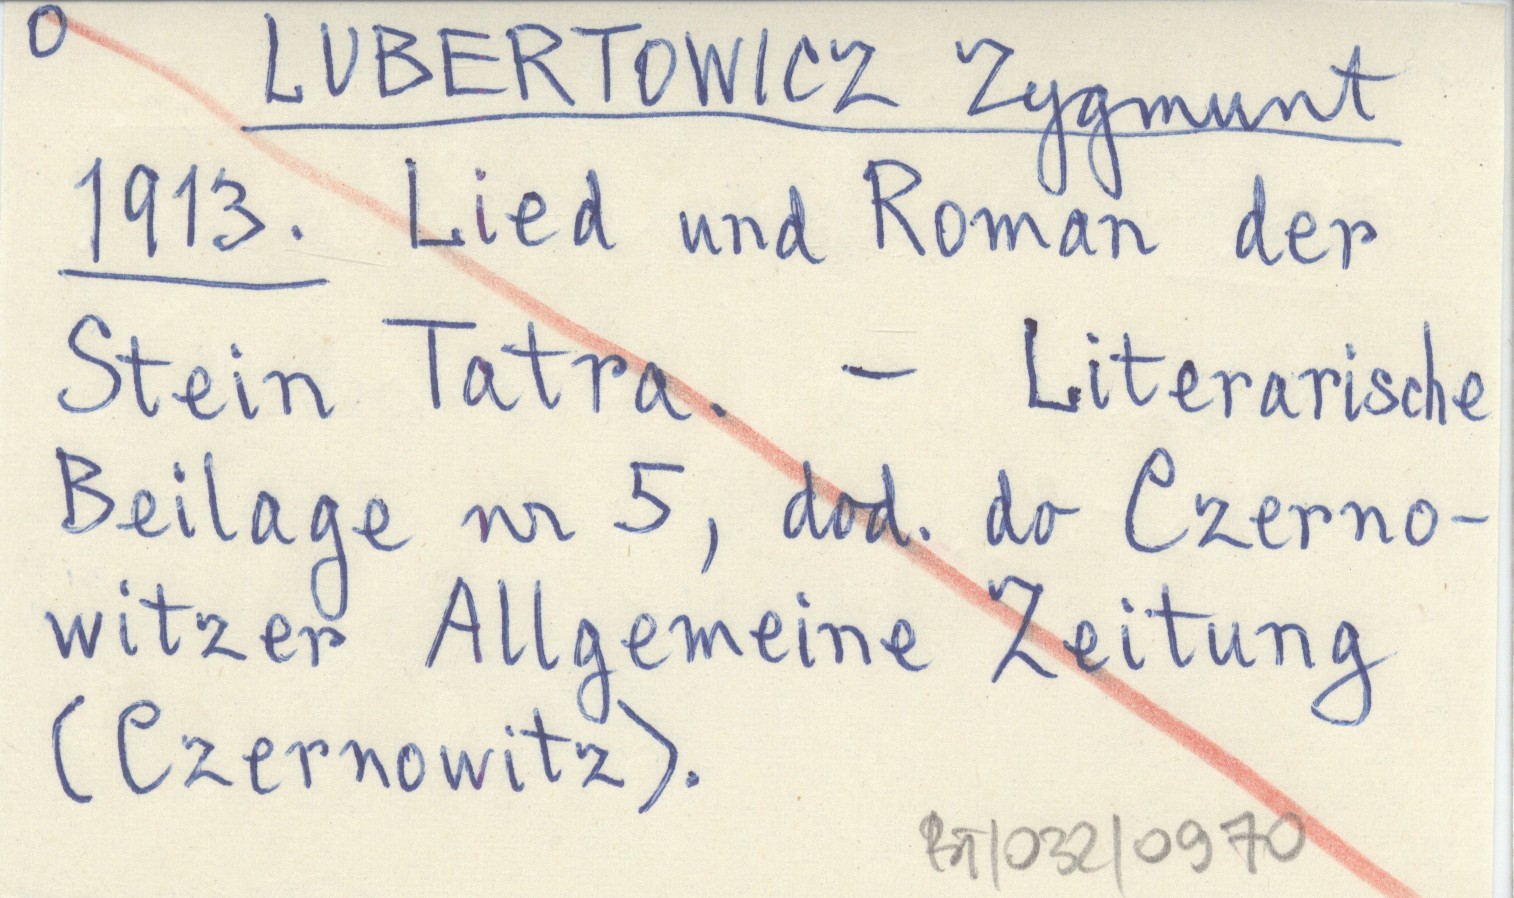 O
LUBERTOWICZ Zygmunt
1913. Lied und Roman der
Stein Tatra. – Literarische
Beilage nr 5, dod. do Czerno-
witzer Allgemeine Zeitung
(Czernowitz).
BT/032/0970